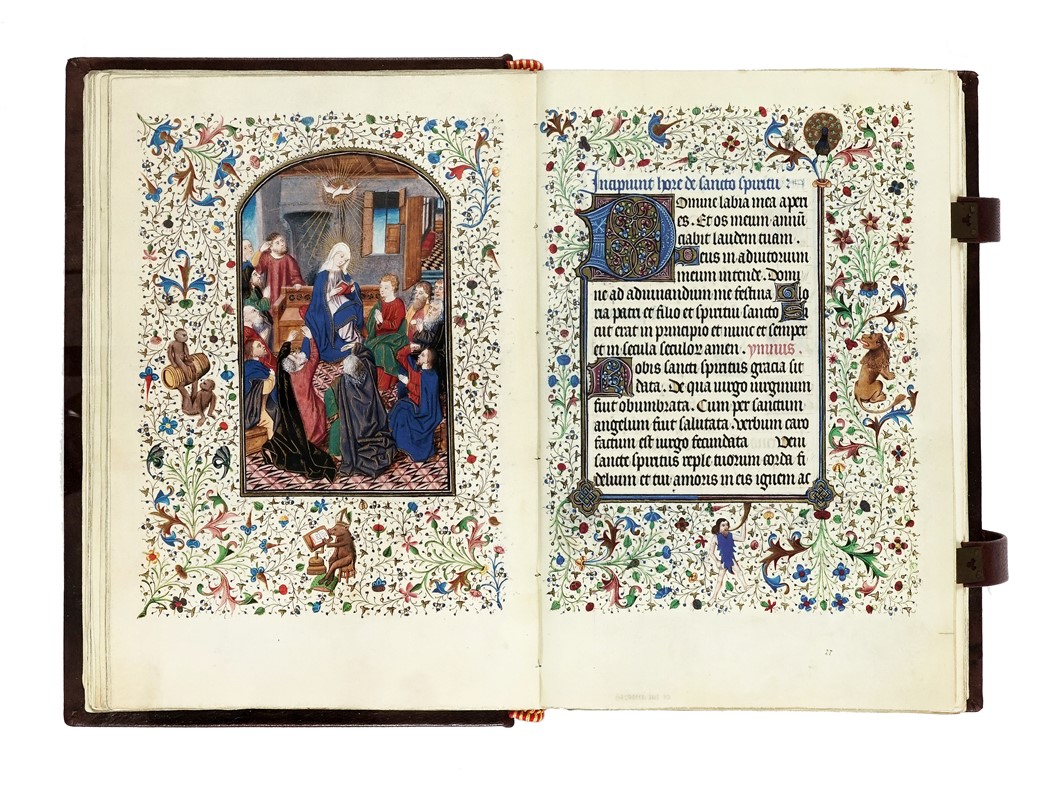 Incipiunt hore de sancto spiritu
Domine labia mea aperi
es. Et os meum annũ
ciabit laudem tuam.
Deus in adiutorium
meum intende. Domi
ne ad adiuuandum me festina Glo
ria patri et filio et spiritui sancto S
icut erat in principio et nunc et semper
et in secula seculorum amen. ymnus.
Nobis sancti spiritus gracia sit
data. De qua uirgo uirginum
fuit obumbrata. Cum per sanctum
angelum fuit salutata. verbum caro
factum est uirgo fecundata Veni
sancte spiritus reple tuorum corda fi
delium et tui amoris in eis ignem ac